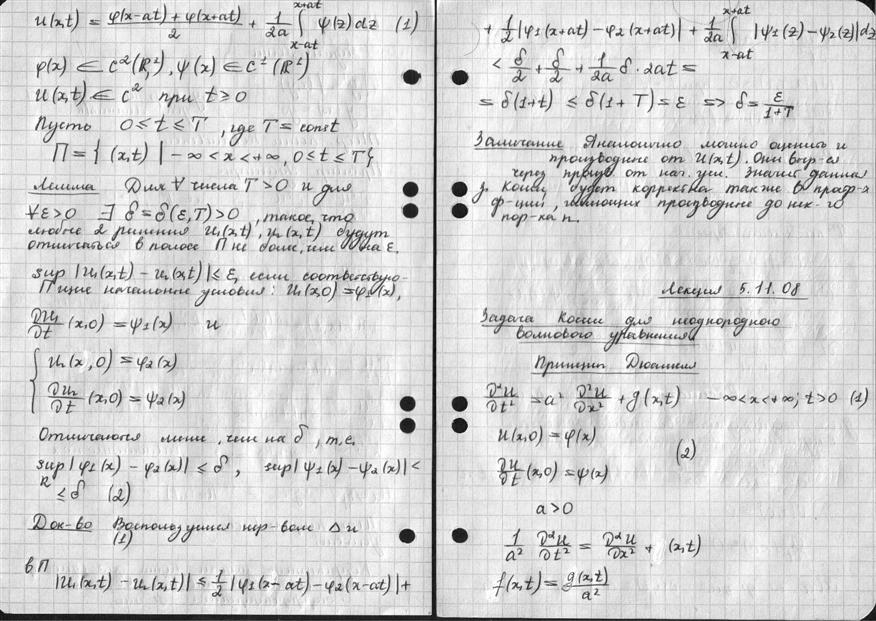 u(x,t) = (φ(x-at) + φ(x+at))/2 + 1/2a ∫_{x-at}^{x+at} ψ(z)dz (1)
φ(x) ∈ C²(R¹), ψ(x) ∈ C¹(R¹)
u(x,t) ∈ C² при t ≥ 0
Пусть 0 ≤ t ≤ T, где T = const
П = { (x,t) | -∞ < x < +∞, 0 ≤ t ≤ T }
Лемма Для ∀ числа T > 0 и для
∀ε>0 ∃ δ = δ(ε,T) > 0, такое, что
любые 2 решения u₁(x,t), u₂(x,t) будут
отличаться в полосе П не более, чем на ε.
sup |u₁(x,t) - u₂(x,t)| ≤ ε, если соответствую-
П щие начальные условия: u₁(x,0) = φ₁(x),
∂u₁/∂t (x,0) = ψ₁(x) и
{ u₂(x,0) = φ₂(x)
∂u₂/∂t (x,0) = ψ₂(x)
Отличаются менее, чем на δ, т.е.
sup |φ₁(x) - φ₂(x)| ≤ δ, sup |ψ₁(x) - ψ₂(x)| <
R ≤ δ (2)
Док-во Воспользуемся нер-вом Δ и
(1)
в П
|u₁(x,t) - u₂(x,t)| ≤ 1/2 |φ₁(x-at) - φ₂(x-at)| +
+ 1/2 |φ₁(x+at) - φ₂(x+at)| + 1/2a ∫_{x-at}^{x+at} |ψ₁(z) - ψ₂(z)| dz
< δ/2 + δ/2 + 1/2a δ · 2at =
= δ(1+t) ≤ δ(1+T) = ε => δ = ε/(1+T)
Замечание Аналогично можно оценить и
производные от u(x,t). Они выр-ся
через произв от нач. усл. Значит данная
з. Коши будет корректна также в
ф-ций, имеющих производные до нек-го
пор-ка n.
Лекция 5.11.08
Задача Коши для неоднородного
волнового уравнения
Принцип Дюамеля
∂²u/∂t² = a² ∂²u/∂x² + g(x,t) -∞<x<+∞; t>0 (1)
u(x,0) = φ(x)
(2)
∂u/∂t (x,0) = ψ(x)
a>0
1/a² ∂²u/∂t² = ∂²u/∂x² + (x,t)
f(x,t) = g(x,t)/a²